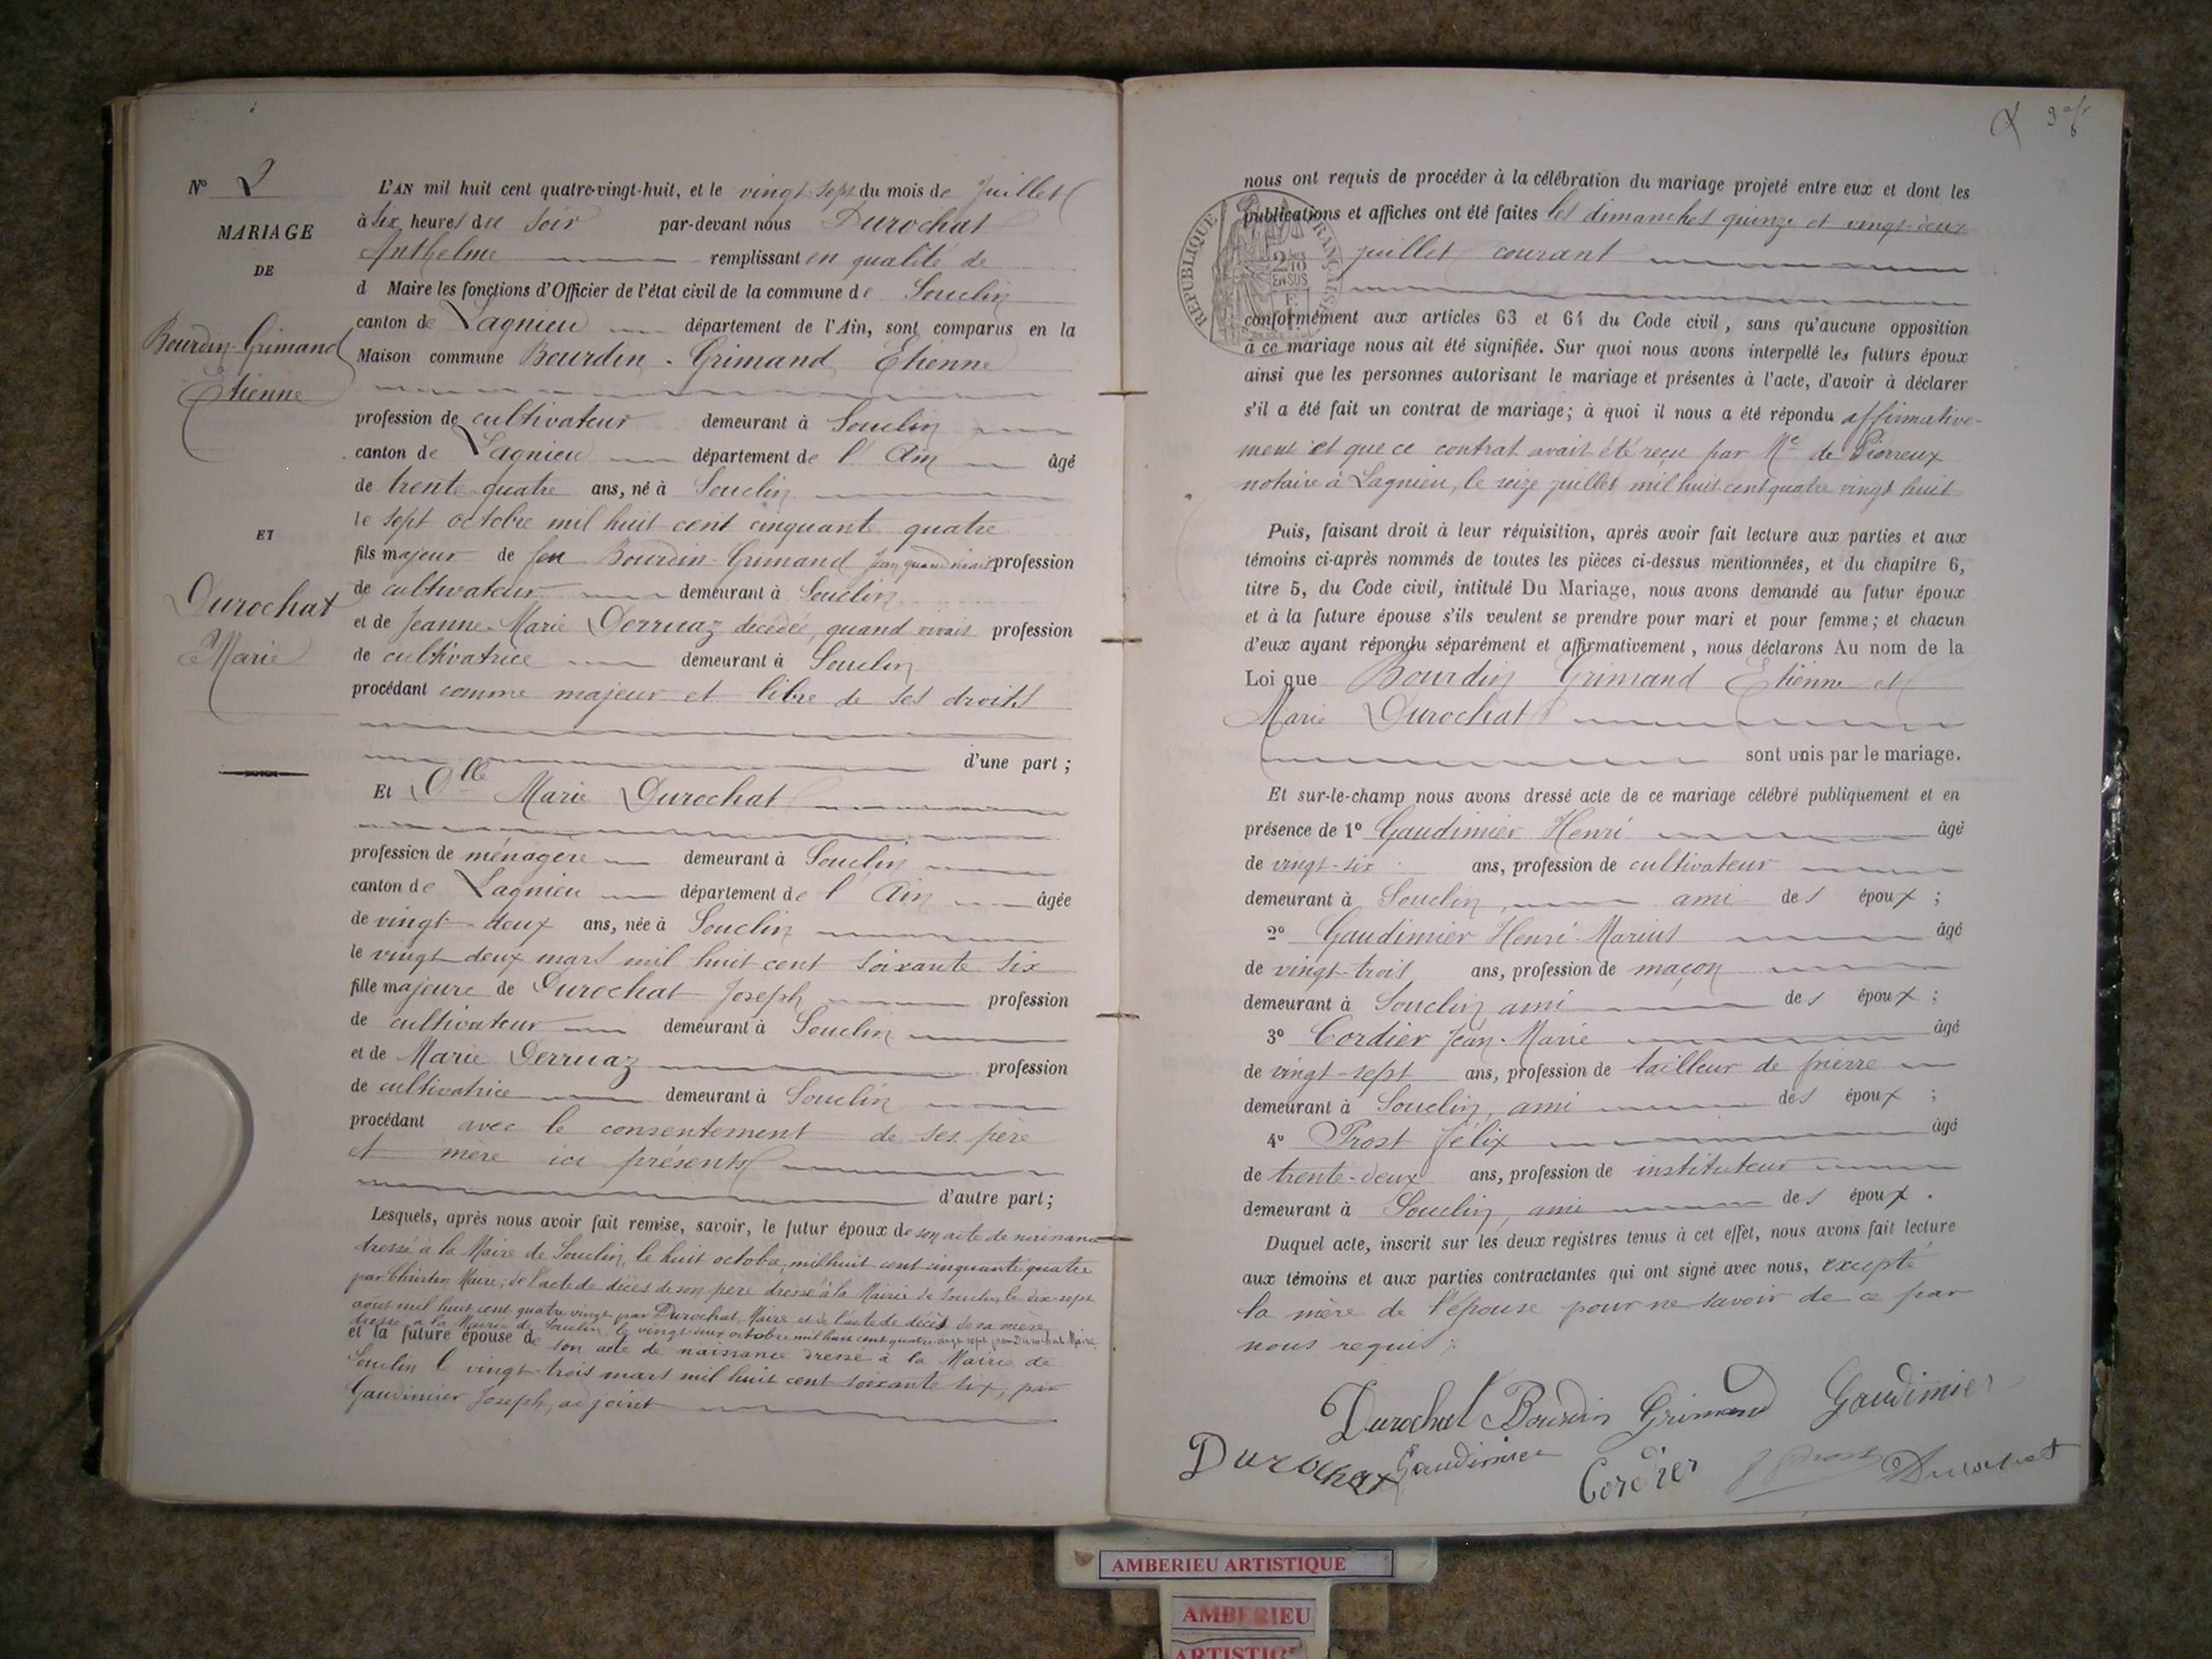 N° 2
MARIAGE
DE
Bourdin-Grimand
Etienne
ET
Durochat
Marie
L'AN mil huit cent quatre-vingt-huit, et le vingt-sept du mois de Juillet
à six heures du soir par-devant nous Durochat
Anthelme remplissant en qualité de
d Maire les fonctions d'Officier de l'état civil de la commune de Souclin
canton de Lagnieu département de l'Ain, sont comparus en la
Maison commune Bourdin-Grimand Etienne
profession de cultivateur demeurant à Souclin
canton de Lagnieu département de l'Ain âgé
de trente-quatre ans, né à Souclin
le sept octobre mil huit cent cinquante quatre
fils majeur de feu Bourdin-Grimand Jean quand vivait profession
de cultivateur demeurant à Souclin
et de Jeanne-Marie Derruaz décédée, quand vivait profession
de cultivatrice demeurant à Souclin
procédant comme majeur et libre de ses droits
d'une part ;
Et Dlle Marie Durochat
profession de ménagère demeurant à Souclin
canton de Lagnieu département de l'Ain âgée
de vingt-deux ans, née à Souclin
le vingt deux mars mil huit cent soixante six
fille majeure de Durochat Joseph profession
de cultivateur demeurant à Souclin
et de Marie Derruaz profession
de cultivatrice demeurant à Souclin
procédant avec le consentement de ses père
et mère ici présents
d'autre part ;
Lesquels, après nous avoir fait remise, savoir, le futur époux de son acte de naissance
dressé à la Maire de Souclin, le huit octobre, mil huit cent cinquante quatre
par Maire, de l'acte de décès de son père dressé à la Mairie de Souclin, le dix-sept
août mil huit cent quatre vingt par Durochat, Maire et de l'acte de décès de sa mère
dressé à la Mairie de Souclin le vingt-deux octobre mil huit cent quatre-vingt sept par Durochat Maire
et la future épouse de son acte de naissance dressé à la Mairie de
Souclin le vingt-trois mars mil huit cent soixante six, par
Gaudimier Joseph, adjoint
nous ont requis de procéder à la célébration du mariage projeté entre eux et dont les
publications et affiches ont été faites les dimanches quinze et vingt-deux
juillet courant
RÉPUBLIQUE FRANÇAISE
2/10
EN SUS
conformément aux articles 63 et 64 du Code civil, sans qu'aucune opposition
à ce mariage nous ait été signifiée. Sur quoi nous avons interpellé les futurs époux
ainsi que les personnes autorisant le mariage et présentes à l'acte, d'avoir à déclarer
s'il a été fait un contrat de mariage; à quoi il nous a été répondu affirmative-
ment et que ce contrat avait été reçu par Me de Pierreux
notaire à Lagnieu, le seize juillet mil huit cent quatre vingt huit
Puis, faisant droit à leur réquisition, après avoir fait lecture aux parties et aux
témoins ci-après nommés de toutes les pièces ci-dessus mentionnées, et du chapitre 6,
titre 5, du Code civil, intitulé Du Mariage, nous avons demandé au futur époux
et à la future épouse s'ils veulent se prendre pour mari et pour femme; et chacun
d'eux ayant répondu séparément et affirmativement, nous déclarons Au nom de la
Loi que Bourdin Grimand Etienne et
Marie Durochat
sont unis par le mariage.
Et sur-le-champ nous avons dressé acte de ce mariage célébré publiquement et en
présence de 1° Gaudimier Henri âgé
de vingt-six ans, profession de cultivateur
demeurant à Souclin, ami des époux ;
2° Gaudimier Henri-Marius âgé
de vingt-trois ans, profession de maçon
demeurant à Souclin ami des époux ;
3° Cordier Jean-Marie âgé
de vingt-sept ans, profession de tailleur de pierre
demeurant à Souclin, ami des époux ;
4° Prost Félix âgé
de trente-deux ans, profession de instituteur
demeurant à Souclin, ami des époux .
Duquel acte, inscrit sur les deux registres tenus à cet effet, nous avons fait lecture
aux témoins et aux parties contractantes qui ont signé avec nous, excepté
la mère de l'épouse pour ne savoir de ce par
nous requis.
Durochat Bourdin Grimand Gaudimier
Durochat Gaudimier Cordier Prost Durochat
AMBERIEU ARTISTIQUE
AMBERIEU
ARTISTIQUE